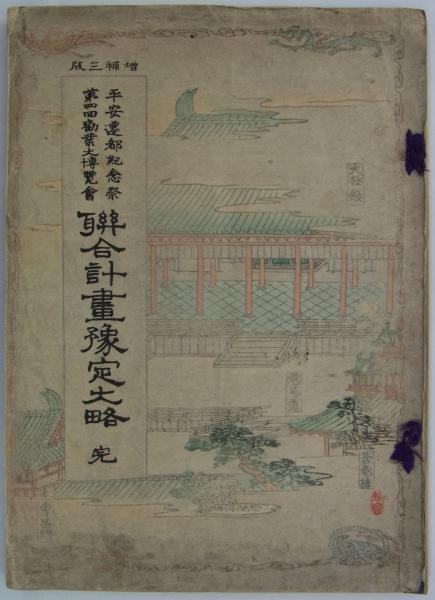 増補三版
平安遷都紀念祭
第四回勸業大博覽會
聯合計畫豫定大略 完
大極殿